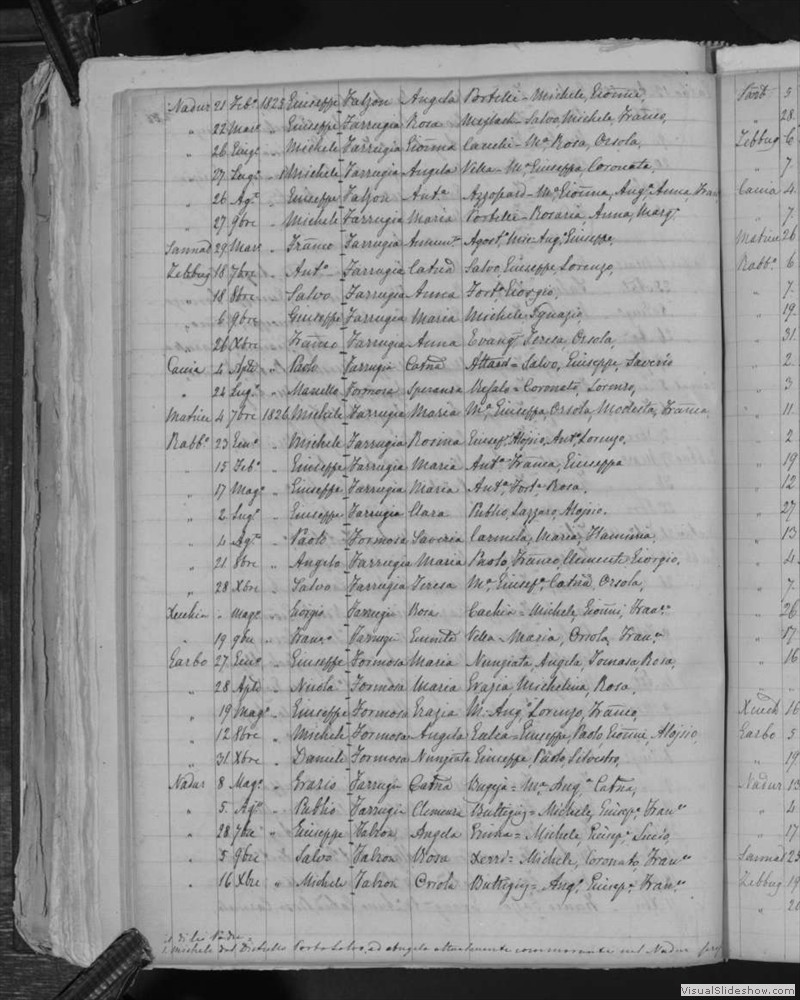 Nadur 21 Feb.º 1825 Giuseppe Falzon Angela Portelli = Michele, Giomie,
" 22 Mar.º " Giuseppe Farrugia Rosa Meylach Salvo, Michele, Franco,
" 26 Giug.º " Michele Farrugia Giovna Camilli = M.ª Rosa, Orsola,
" 27 Lug.º " Michele Farrugia Angela Vella = M.ª Giuseppa, Coronata,
" 26 Ag.º " Giuseppe Falzon Ant.ª Azzopard = M.ª Giovna, Ang.ª Anna, Fran
" 27 9bre " Michele Farrugia Maria Portelli = Rosaria, Anna, Marg.
Sannat 29 Mar.º " Franco Farrugia Annun.ª Agost.º Mic. Ang.º Giuseppe,
Zebbug 18 7bre " Ant.º Farrugia Catnã Salvo, Giuseppe, Lorenzo,
" 18 8bre " Salvo Farrugia Anna Fort.º Giorgio,
" 6 9bre " Giuseppe Farrugia Maria Michele Ignazio,
" 26 Xbre " Franco Farrugia Anna Evang.ª Teresa, Orsola,
Caccia 4 Aple " Paolo Farrugia Catnã Attard = Salvo, Giuseppe, Saverio
" 24 Lug.º " Formosa Speranza Refalo = Coronato, Lorenzo,
Matrice 4 7bre 1826 Michele Farrugia Maria M.ª Giuseppa, Orsola, Modesta, Franca
Rabb.º 23 Gen.º " Michele Farrugia Rosina Giusep.º Alojsio, Ant.º Lorenzo,
" 15 Feb.º " Giuseppe Farrugia Maria Ant.ª Franca, Giuseppa
" 17 Mag.º " Giuseppe Farrugia Maria Ant.ª Fort.ª Rosa,
" 2 Lug.º " Giuseppe Farrugia Clara Publio, Lazzaro, Alojsio.
" 4 Ag.º " Paolo Formosa Saveria Carmela, Maria, Flaminia,
" 21 8bre " Angelo Farrugia Maria Paolo, Franco, Clemente Giorgio,
" 28 Xbre " Salvo Farrugia Teresa M.ª Giusep.ª Catnã Orsola,
Xeuchia " Mag.º " Giorgio Farrugi Rosa Cachia = Michele, Giomi, Fran.co
" 19 9bre " Fran.co Farrugi Vella = Maria, Orsola, Fran.ca
Garbo 27 Gen.º " Giuseppe Formosa Maria Nunziata, Angela, Tomasa, Rosa,
" 28 Aple " Nicola Formosa Maria Grazia, Michelina, Rosa,
" 19 Mag.º " Giuseppe Formosa Grazia M. Ang.º Lorenzo, Franco,
" 12 8bre " Michele Formosa Angela Galea = Giuseppe, Paolo, Giomie, Alojsio,
" 31 Xbre " Daniele Formosa Nunziata Giuseppe, Paolo, Silvestro,
Nadur 8 Mag.º " Grazio Farrugi Catnã Bugeja = M.ª Ang.ª Catnã,
" 5 Ag.º " Publio Farrugia Clemenza Buttigig = Michele, Giusep.e Fran.co
" 28 7bre " Giuseppe Falzon Angela = Michele, Giusep.e
" 5 9bre " Salvo Falzon Rosa Xerri = Michele, Coronato, Fran.co
" 16 Xbre " Michele Falzon Orsola Buttigig = Ang.º Giusep.e Fran.co
Michele dal Distretto Porto Salvo, ed Angela attualmente commorante nel Nadur
Garb 5
" 28
Zebbug 6
" 7
Caccia 4
" 7
Matrice 26
Rabb.º 6
" 7
" 19
" 31
" 2
" 3
" 11
" 2
" 19
" 12
" 27
" 13
" 4
" 7
" 26
" 17
" 16
Xeuch 16
Garbo 5
" 19
Nadur 13
" 4
" 17
Sannat 23
Zebbug 19
VisualSlideshow.com